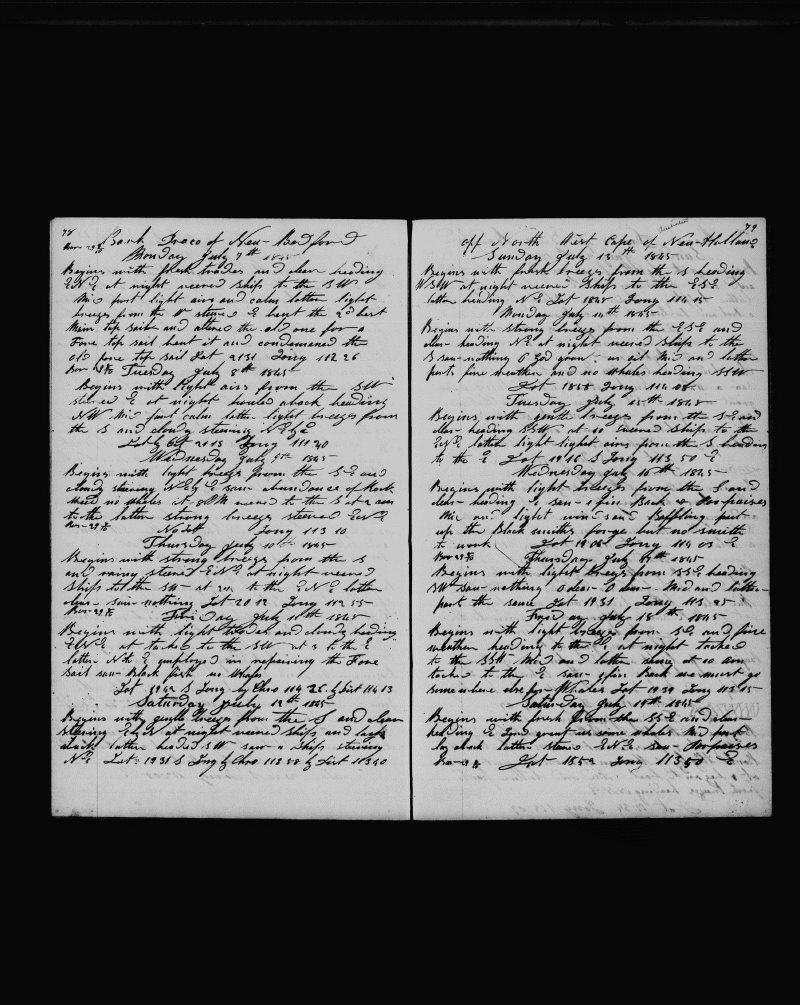 78
Bark Draco of New-Bedford
Monday July 7th 1845
Begins with fresh trades and clear heading
ENE at night veered ships to the SW
Mid part light airs and calm latter light
breezes from the W steered E bent the 2d best
Main top sail and altered the old one for a
Fore top sail bent it and condemned the
old fore top sail Lat 2131 Long 112 26
Tuesday July 8th 1845
Begins with light airs from the SW
steered E at night hauled aback heading
NW Mid part calm latter light breezes from
the S and cloudy steering NE by E
Lat by 2113 Long 111 40
Wednesday July 9th 1845
Begins with light breezes from the SE and
cloudy steering NE by E saw abundance of Rock
weed no whales at 8 PM veered to the S at 2 am
to the latter strong breezes steered ENE
No Lat Long 113 10
Thursday July 10th 1845
Begins with strong breezes from the S
and rainy steered ENE at night veered
ships to the SW at to the ENE latter
clear saw nothing Lat 20 12 Long 112 55
Friday July 11th 1845
Begins with light trades and cloudy heading
at tacked to the SW at 3 to the E
latter employed in repairing the Fore
sail saw Black fish no whales
Lat 1942 S Long by Chro 114 26 by Dist 114 13
Saturday July 12th 1845
Begins with gentle breezes from the S and clear
steering E by N at night veered ships and lays
aback latter headed SW saw a ship steering
NE Lat 1931 S Long by Chro 113 58 by Dist 113 40
79
off North West Cape of New-Holland
Sunday July 13th 1845
Begins with fresh breezes from the S heading
WSW at night veered ships to the ESE
latter heading NE Lat 1848 Long 114 15
Monday July 14th 1845
Begins with strong breezes from the ESE and
clear heading NE at night veered ships to the
S saw nothing O God grow us oil Mid and latter
part fine weather and no whales heading SSW
Lat 1858 Long 114 08
Tuesday July 15th 1845
Begins with gentle breezes from the SE and
clear heading SSW at 10 veered ships to the
ENE latter light light airs from the S heading
to the E Lat 19 16 S Long 113 50 E
Wednesday July 16th 1845
Begins with light breezes from the S and
clear heading E saw 1 fin Back & Porpoises
Mid and light winds and Baffling put
up the Black smiths forge but no smith
to work Lat 1906 Long 114 03 E
Thursday July 17th 1845
Begins with light breezes from SSE heading
SW saw nothing O dear O dear Mid and latter
part the same Lat 1931 Long 113 25
Friday July 18th 1845
Begins with light breezes from SE and fine
weather heading to the E at night tacked
to the SSW Mid and latter same at 10 am
tacked to the E saw 1 fin Back we must go
somewhere else for Whales Lat 1939 Long 113 15
Saturday July 19th 1845
Begins with fresh from the SSE and clear
heading E Lord grant us some whales Mid part
lay aback latter steered ENE saw Porpoises
Lat 1852 Long 113 50 E